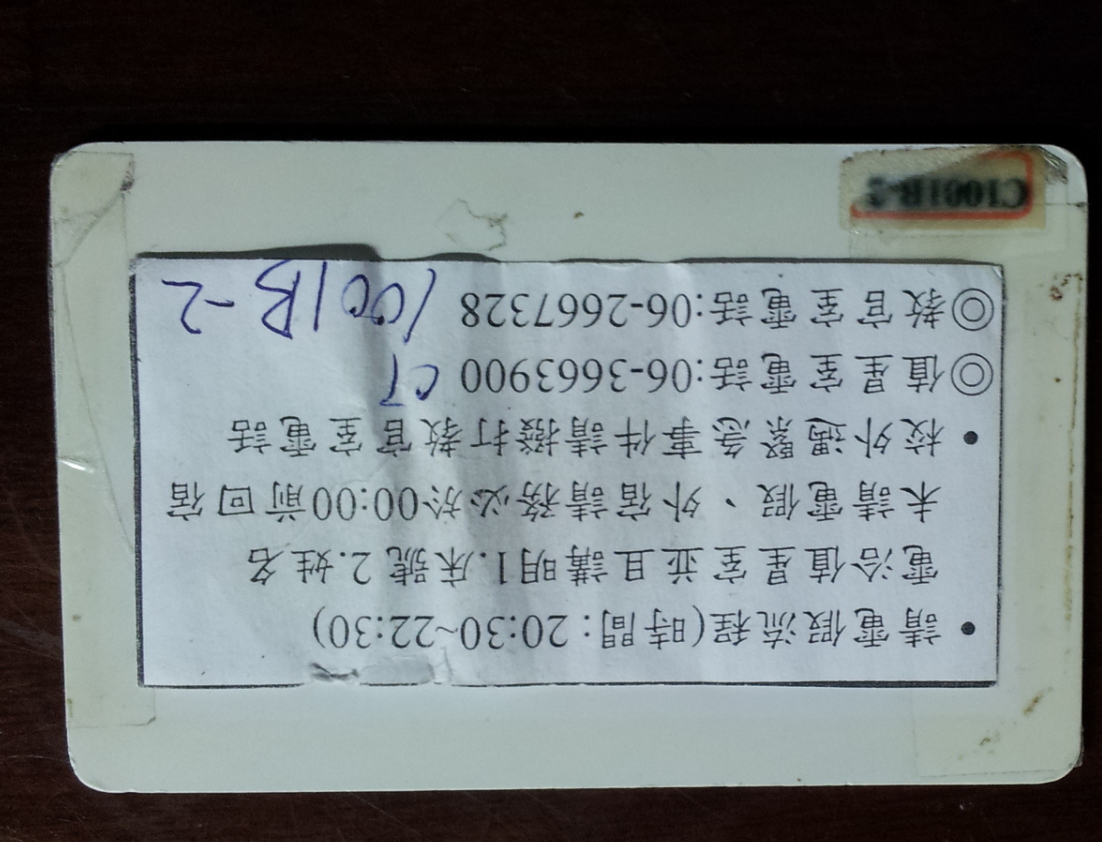 • 請電假流程(時間：20:30~22:30)
電洽值星室並且講明1.床號 2.姓名
未請電假、外宿請務必於00:00前回宿
• 校外遇緊急事件請撥打教官室電話
◎值星室電話:06-3663900 CT
◎教官室電話:06-2667328 1001B-2
C1001B-2